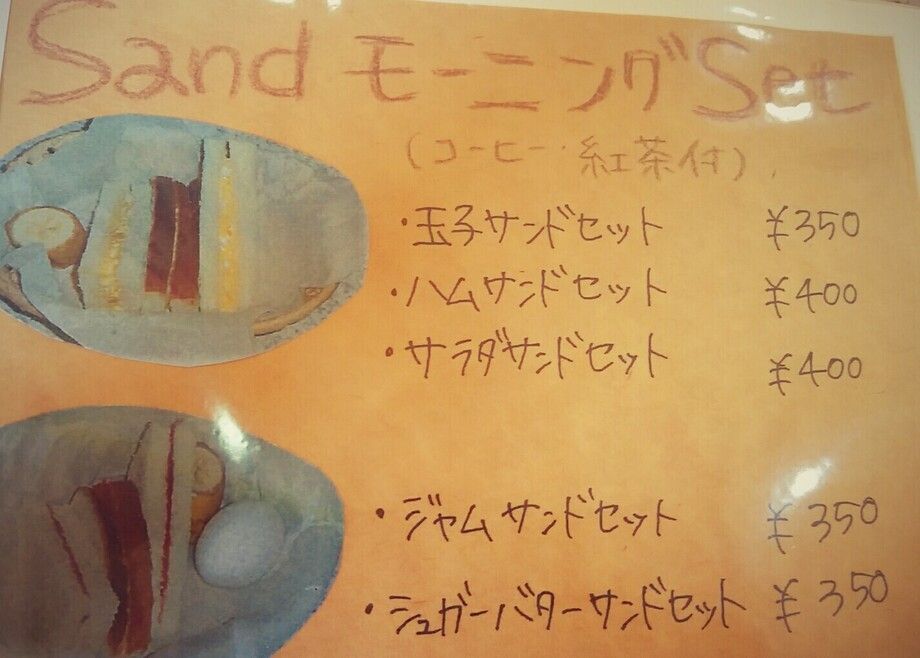 Sand モーニング Set
(コーヒー・紅茶付)
・玉子サンドセット ¥350
・ハムサンドセット ¥400
・サラダサンドセット ¥400
・ジャムサンドセット ¥350
・シュガーバターサンドセット ¥350